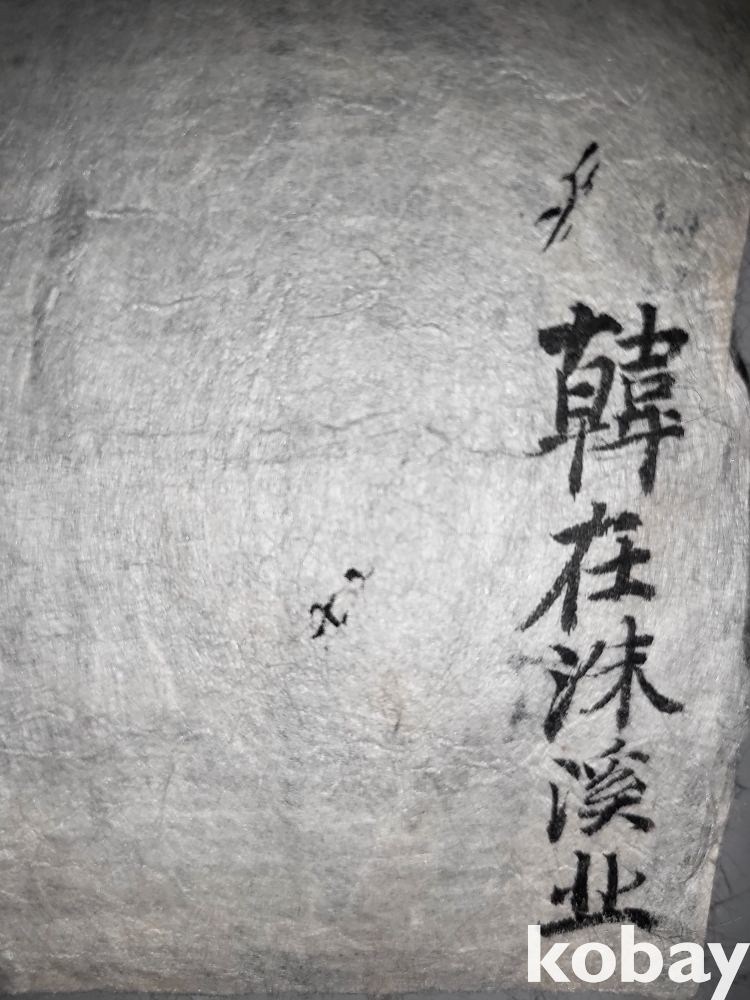 韓在洙溪业
kobay